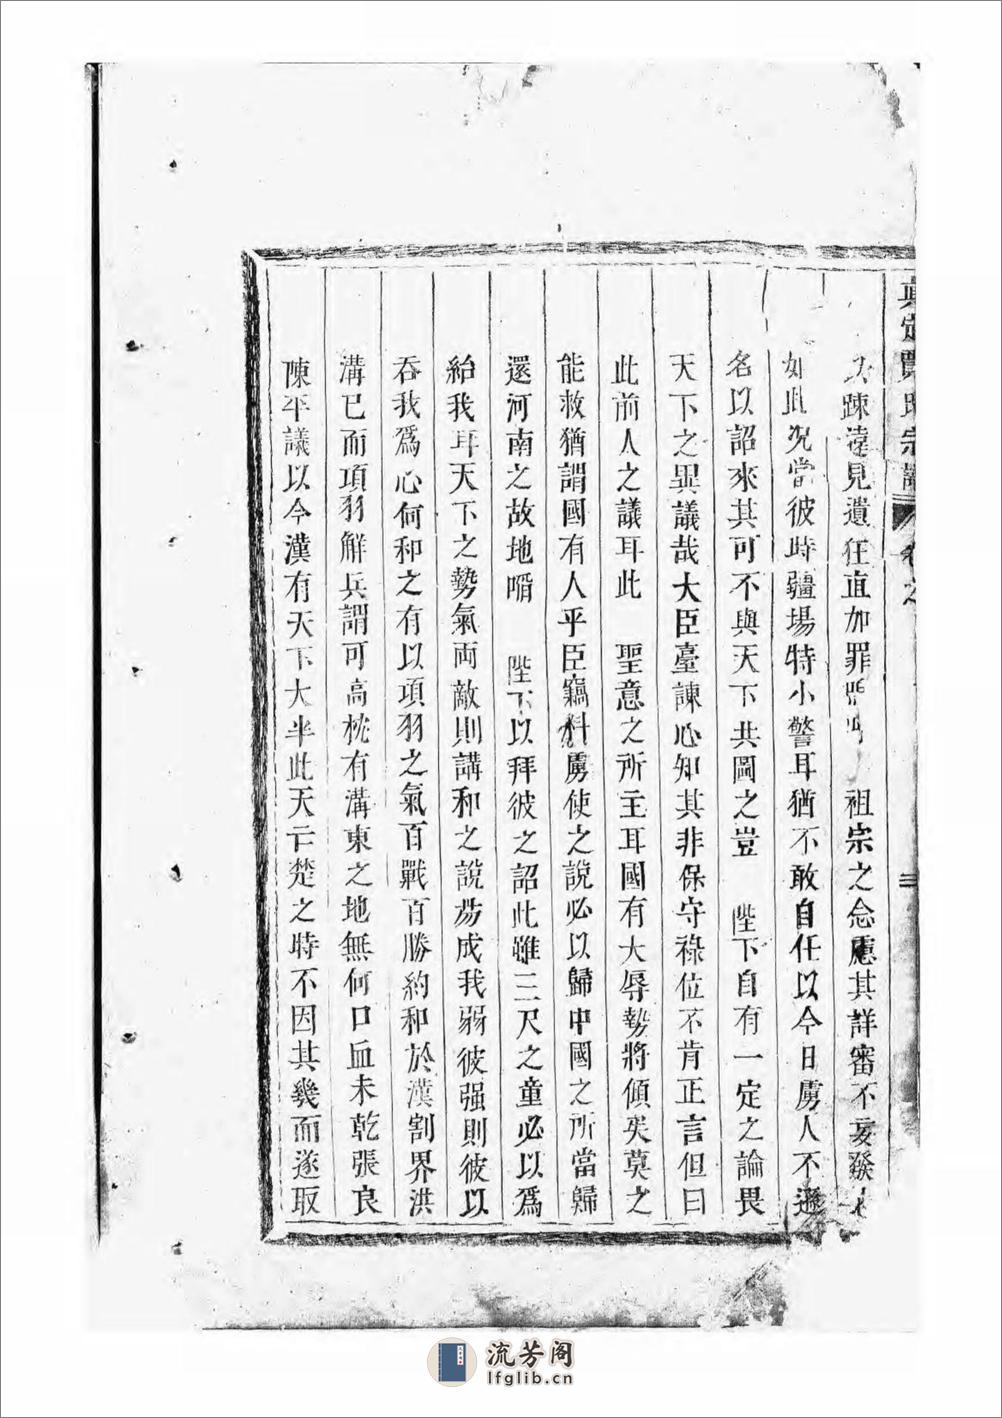 真定賈氏宗譜 卷之 三
疎遠見遺狂直加罪 祖宗之念慮其詳審不妄發
如此況當彼時疆場特小警耳猶不敢自任以今日虜人不遜
名以詔來其可不與天下共圖之豈 陛下自有一定之論畏
天下之異議哉大臣臺諫心知其非保守祿位不肯正言但曰
此前人之議耳此 聖意之所主耳國有大辱勢將傾矣莫之
能救猶謂國有人乎臣竊料虜使之說必以歸中國之所當歸
還河南之故地啗 陛下以拜彼之詔此雖三尺之童必以爲
紿我耳天下之勢氣両敵則講和之說易成我弱彼强則彼以
吞我爲心何和之有以項羽之氣百戰百勝約和於漢割界洪
溝已而項羽解兵謂可高枕有溝東之地無何口血未乾張良
陳平議以今漢有天下大半此天亡楚之時不因其幾而遂取
流芳阁
lfglib.cn